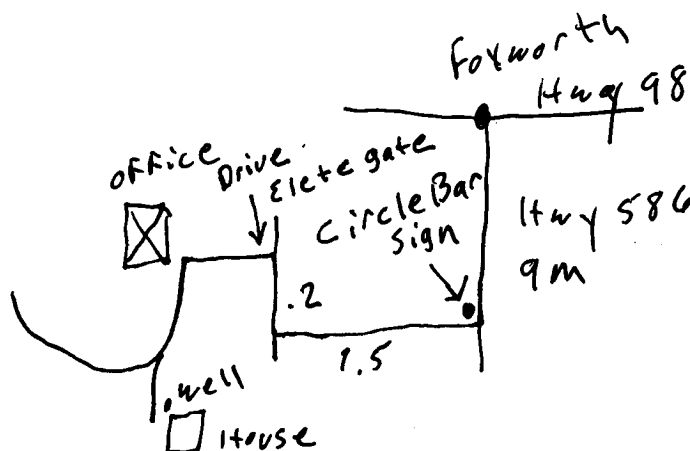 Foxworth
Hwy 98
office
Drive
Elete gate
Circle Bar
sign
Hwy 586
9m
.2
1.5
.well
House